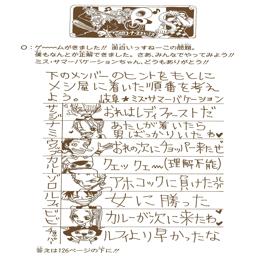 ○:ゲーームがきました!! 面白いっすねーこの問題。
僕もなんとか正解できました。さあ、みんなでやってみよう!!
ミス・サマーバケーションちゃん、どうもありがとう!!
下のメンバーのヒントをもとに
メシ屋に着いた順番を考え
よう。 岐阜★ミス・サマーバケーション
サンジ おれはレディファーストだ
ナミ あたしが着いたら男ばっかりいたわ
ウソップ おれの次にチョッパー来た
カルー クエックェー(理解不能)
ゾロ アホコックに負けた
ルフィ 女に勝った
ビビ カルーが次に来たわ
チョッパー ルフィより早かったな
答えは126ページの下に!!